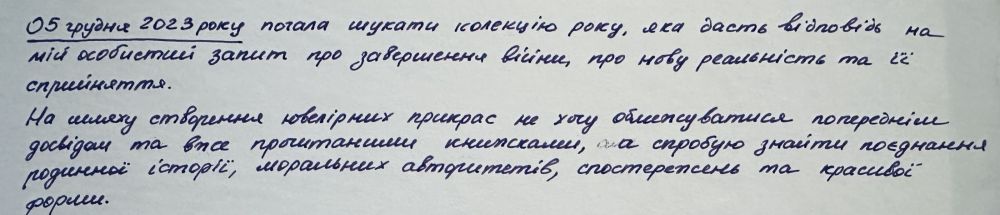 05 грудня 2023 року почала шукати колекцію року, яка дасть відповідь на
мій особистий запит про завершення війни, про нову реальність та її
сприйняття.
На шляху створення ювелірних прикрас не хочу обмежуватися попереднім
досвідом та вже прочитаними книжками, а спробую знайти поєднання
родинної історії, моральних авторитетів, спостережень та красивої
форми.